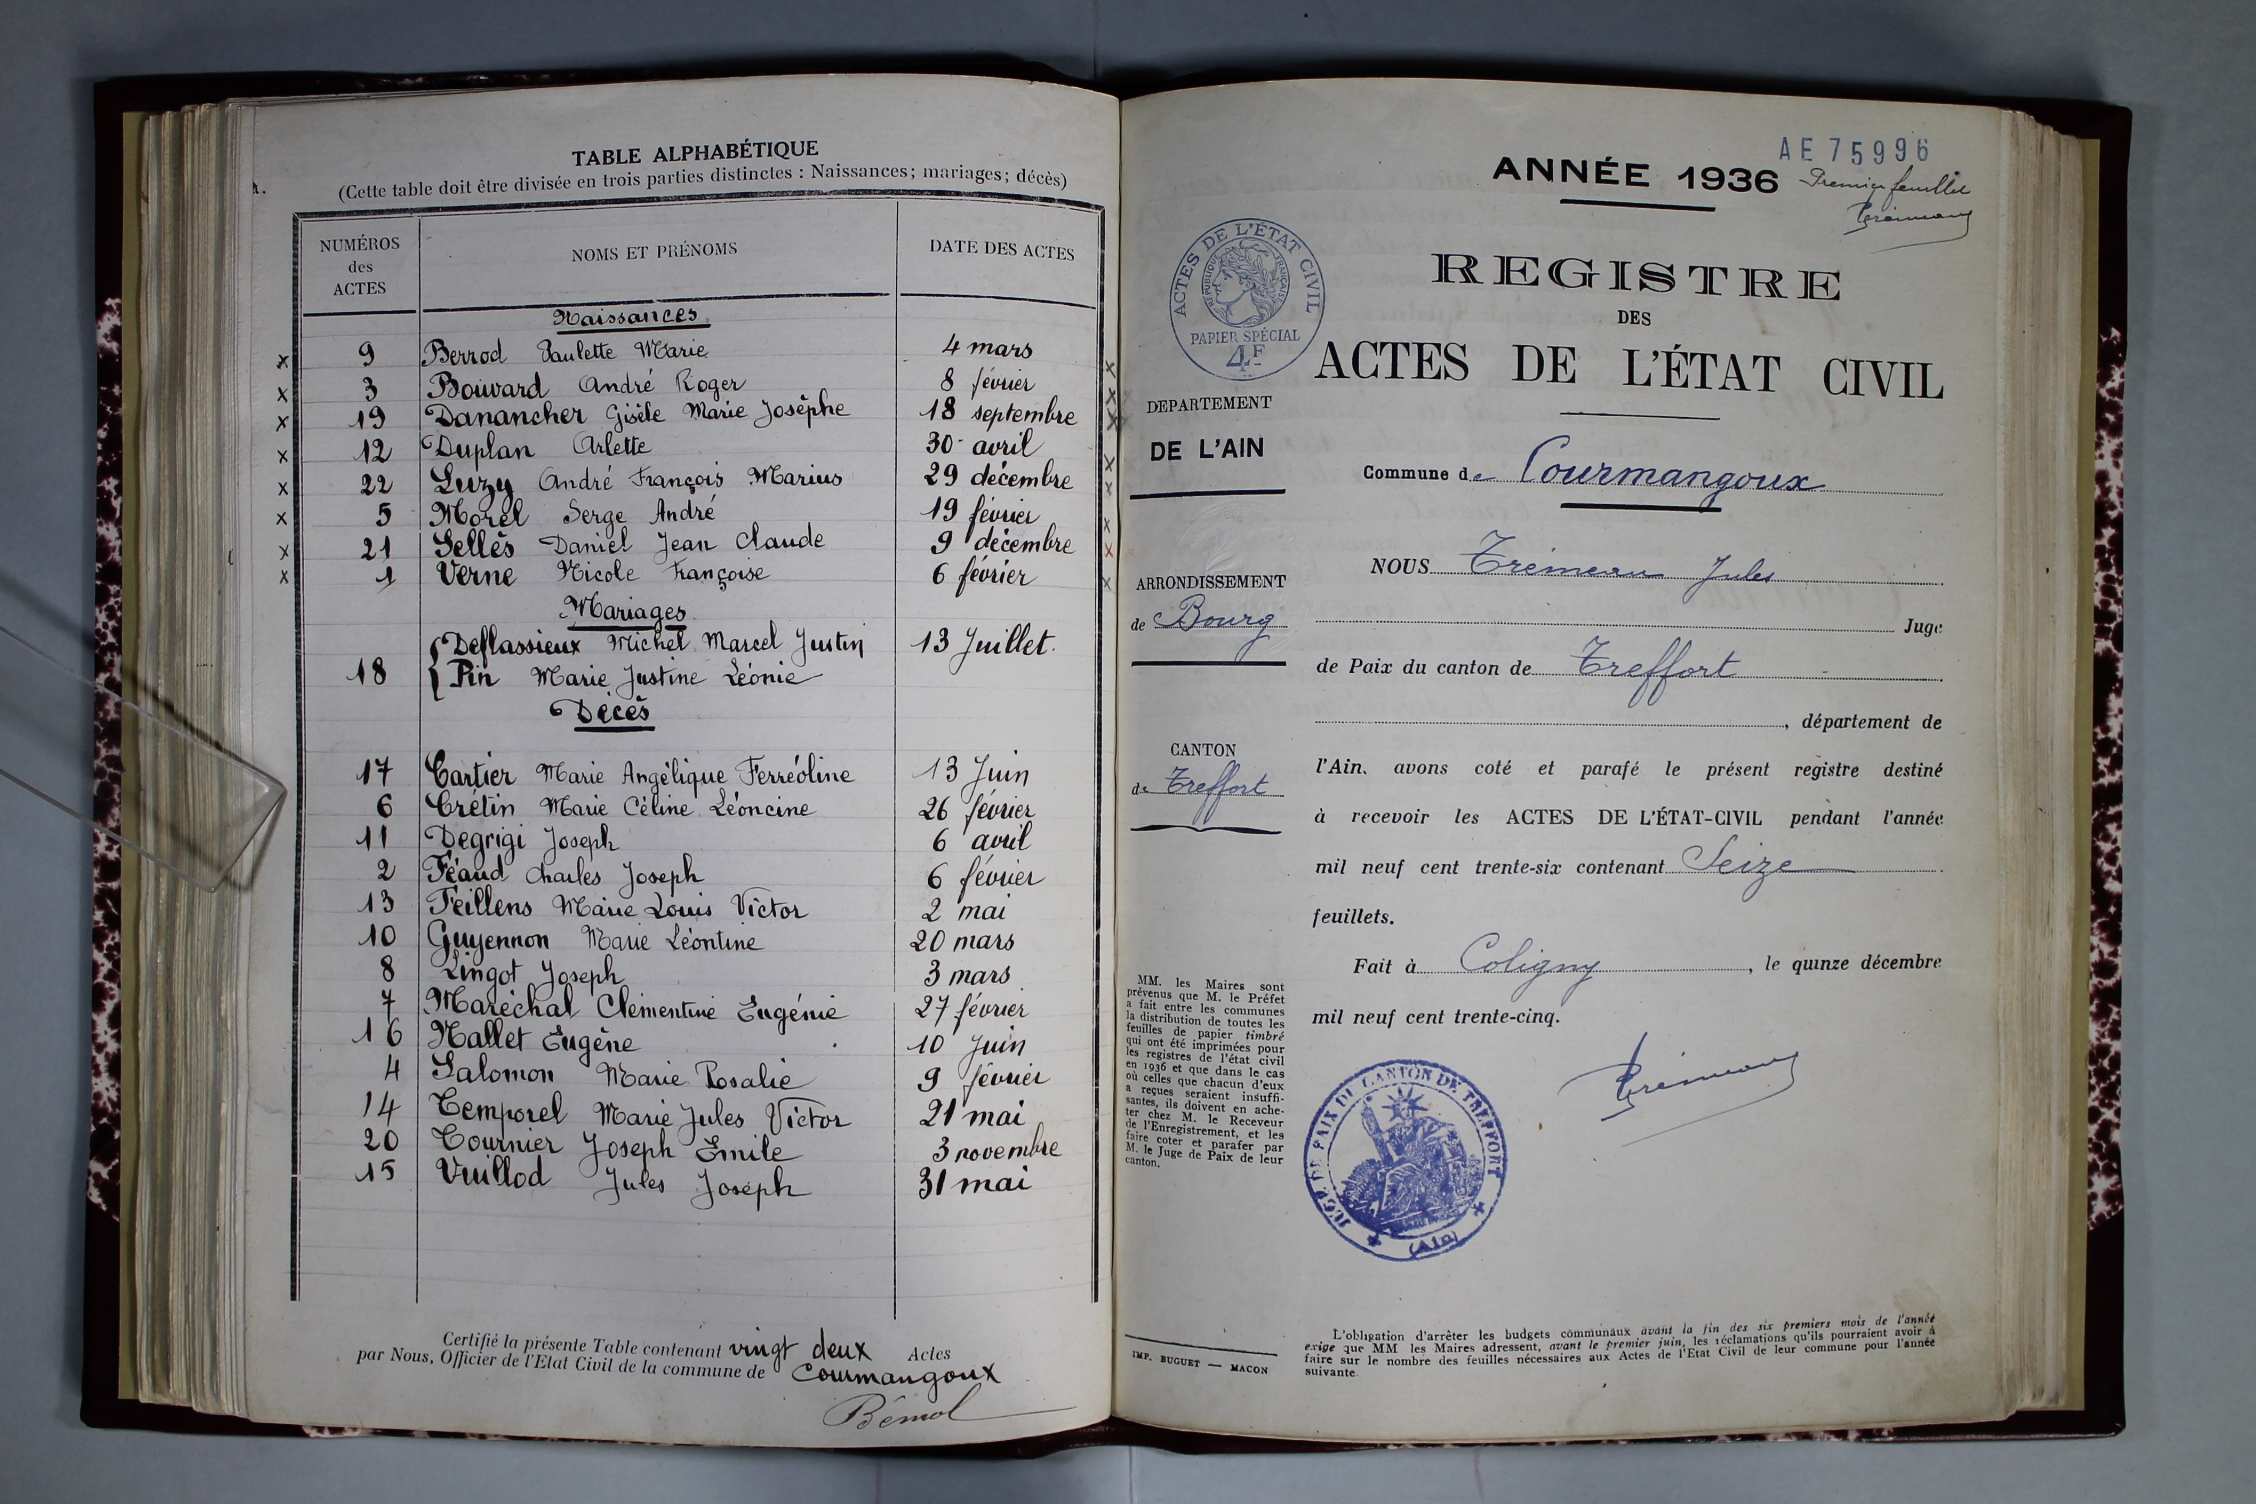 TABLE ALPHABÉTIQUE
(Cette table doit être divisée en trois parties distinctes : Naissances; mariages; décès)
NUMÉROS des ACTES | NOMS ET PRÉNOMS | DATE DES ACTES
Naissances
9 Berrod Paulette Marie 4 mars
3 Bouvard André Roger 8 février
19 Danancher Gisèle Marie Josèphe 18 septembre
12 Duplan Arlette 30 avril
22 Luzy André François Marius 29 décembre
5 Morel Serge André 19 février
21 Sellès Daniel Jean Claude 9 décembre
1 Verne Nicole Françoise 6 février
Mariages
Deflassieux Michel Marcel Justin 13 Juillet.
18 Pin Marie Justine Léonie
Décès
17 Cartier Marie Angélique Ferréoline 13 Juin
6 Crétin Marie Céline Léoncine 26 février
11 Degrigi Joseph 6 avril
2 Féaud Charles Joseph 6 février
13 Feillens Marie Louis Victor 2 mai
10 Guyennon Marie Léontine 20 mars
8 Lingot Joseph 3 mars
7 Maréchal Clémentine Eugénie 27 février
16 Nallet Eugène 10 Juin
4 Salomon Marie Rosalie 9 février
14 Temporel Marie Jules Victor 21 mai
20 Tournier Joseph Emile 3 novembre
15 Vuillod Jules Joseph 31 mai
Certifié la présente Table contenant vingt deux Actes
par Nous, Officier de l'Etat Civil de la commune de Courmangoux
Bémol
AE 75996
ANNÉE 1936
Premier feuillet
Trémeau
ACTES DE L'ÉTAT CIVIL
RÉPUBLIQUE FRANÇAISE
PAPIER SPÉCIAL
4F
REGISTRE
DES
ACTES DE L'ÉTAT CIVIL
DEPARTEMENT
DE L'AIN
Commune de Courmangoux
NOUS Trémeau Jules
ARRONDISSEMENT
de Bourg
Juge
de Paix du canton de Treffort
, département de
CANTON
de Treffort
l'Ain, avons coté et parafé le présent registre destiné
à recevoir les ACTES DE L'ÉTAT-CIVIL pendant l'année
mil neuf cent trente-six contenant Seize
feuillets.
Fait à Coligny, le quinze décembre
mil neuf cent trente-cinq.
Trémeau
MM. les Maires sont
prévenus que M. le Préfet
a fait entre les communes
la distribution de toutes les
feuilles de papier timbré
qui ont été imprimées pour
les registres de l'état civil
en 1936 et que dans le cas
où celles que chacun d'eux
a reçues seraient insuffi-
santes, ils doivent en ache-
ter chez M. le Receveur
de l'Enregistrement, et les
faire coter et parafer par
M. le Juge de Paix de leur
canton.
JUGE DE PAIX DU CANTON DE TREFFORT
(Ain)
IMP. BUGUET — MACON
L'obligation d'arrêter les budgets communaux avant la fin des six premiers mois de l'année
exige que MM les Maires adressent, avant le premier juin, les réclamations qu'ils pourraient avoir à
faire sur le nombre des feuilles nécessaires aux Actes de l'Etat Civil de leur commune pour l'année
suivante.